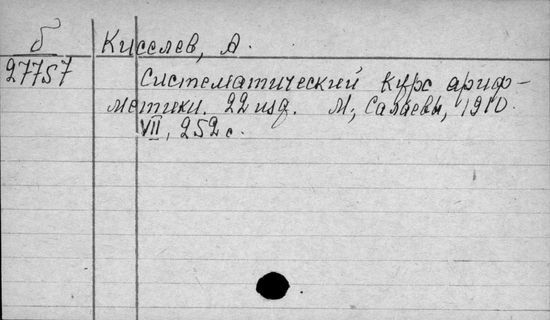 б
27757
Киселев, А.
Систематический курс ариф-
метики. 22 изд. М., Салаевы, 1910.
VII, 252 с.